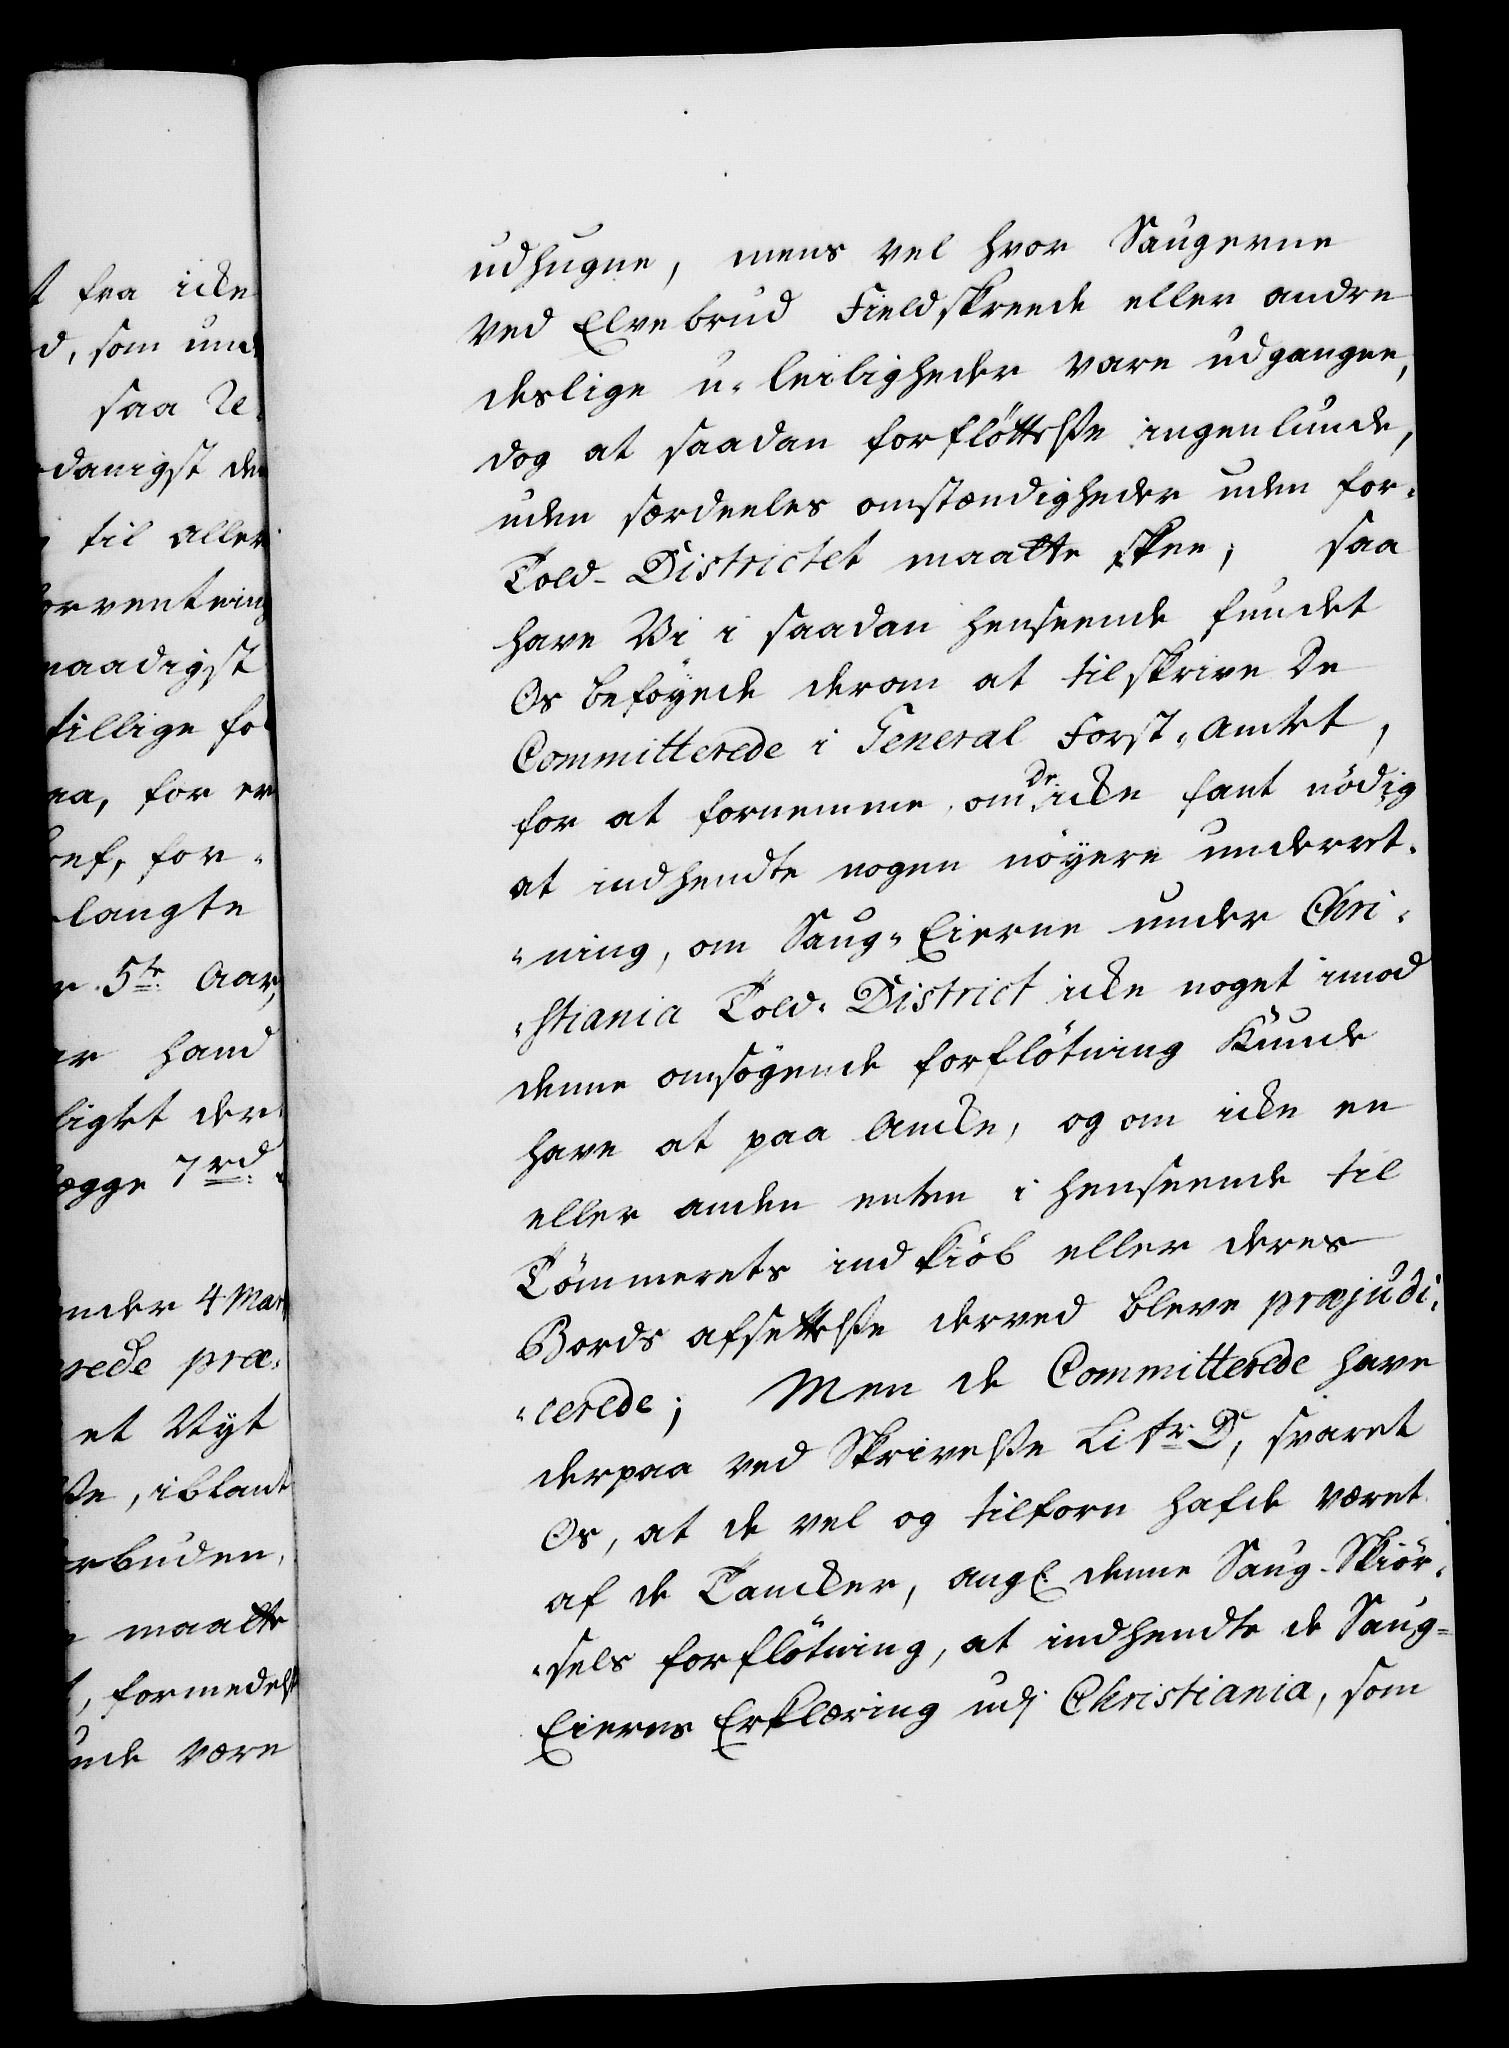 t fra icke
d, som und
saa Re-
danigst den
til aller
orventning
naadigst
tillige fo
na, for en
ref, for-
langte
r 5te Aar,
er hand
ligt der
lægge 7 rd.
under 4 Mar
rede præ-
et Nyt
ße, iblant
rbuden,
maatte
, formedelst
nde være
udhugne, mens vel hvor Saugerne
ved Elvebrud Fieldskreede eller andre
deslige u-leiligheder vare udgangne,
dog at saadan forfløttelße ingenlunde,
uden særdeeles omstændigheder uden for-
Told-Districtet maatte skee; saa
have Vi i saadan henseende fundet
Os beföyede derom at tilskrive De
Committerede i General Forst-Amtet,
for at fornemme, om De icke fant nödig
at indhendte nogen nöyere underret-
-ning, om Saug-Eierne under Chri-
-stiania Told-District icke noget imod
denne omsögende forflötning kunde
have at paa Ancke, og om icke en
eller anden enten i henseende til
Tömmerets indkiöb eller deres
Bords afsettelße derved bleve præjudi-
-cerede; Men de Committerede have
derpaa ved Skrivelße Litr. D, svaret
Os, at de vel og tilforn hafde været
af de Tancker, angl. denne Saug-Skiör-
-sels forflötning, at indhendte de Saug-
Eieres Erklæring udj Christiania, som